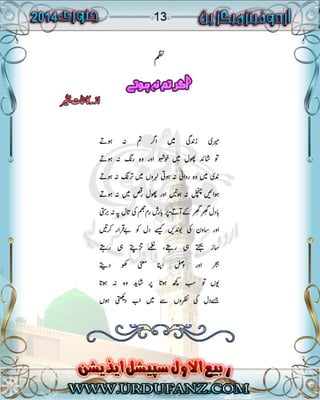 جنوری 2014
13
اردو فینز میگزین
نظم
اگر تم نہ ہوتے
میری زندگی میں اگر تم نہ ہوتے
تو شائد پھول میں خوشبو اور وہ رنگ نہ ہوتے
ندی میں وہ روانی نہ ہوتی لہروں میں ترنگ نہ ہوتے
ہوائیں چنچل نہ ہوتیں اور پھول رقص میں نہ ہوتے
بادل گھر گھر کے آتے پر بارش رم جھم کی تال پہ نہ برستی
اور ساون کی بوندیں کیسے دل کو بےقرار کرتیں
ساز بجتے ہی رہتے، نغمے تڑپتے ہی رہتے
ہجر اور وصل اپنا معنی کھو دیتے
یوں تو سب کچھ ہوتا پر شاید وہ نہ ہوتا
جسے دل کی نظروں سے میں اب دیکھتی ہوں
ربیع الاول سپیشل ایڈیشن
WWW.URDUFANZ.COM